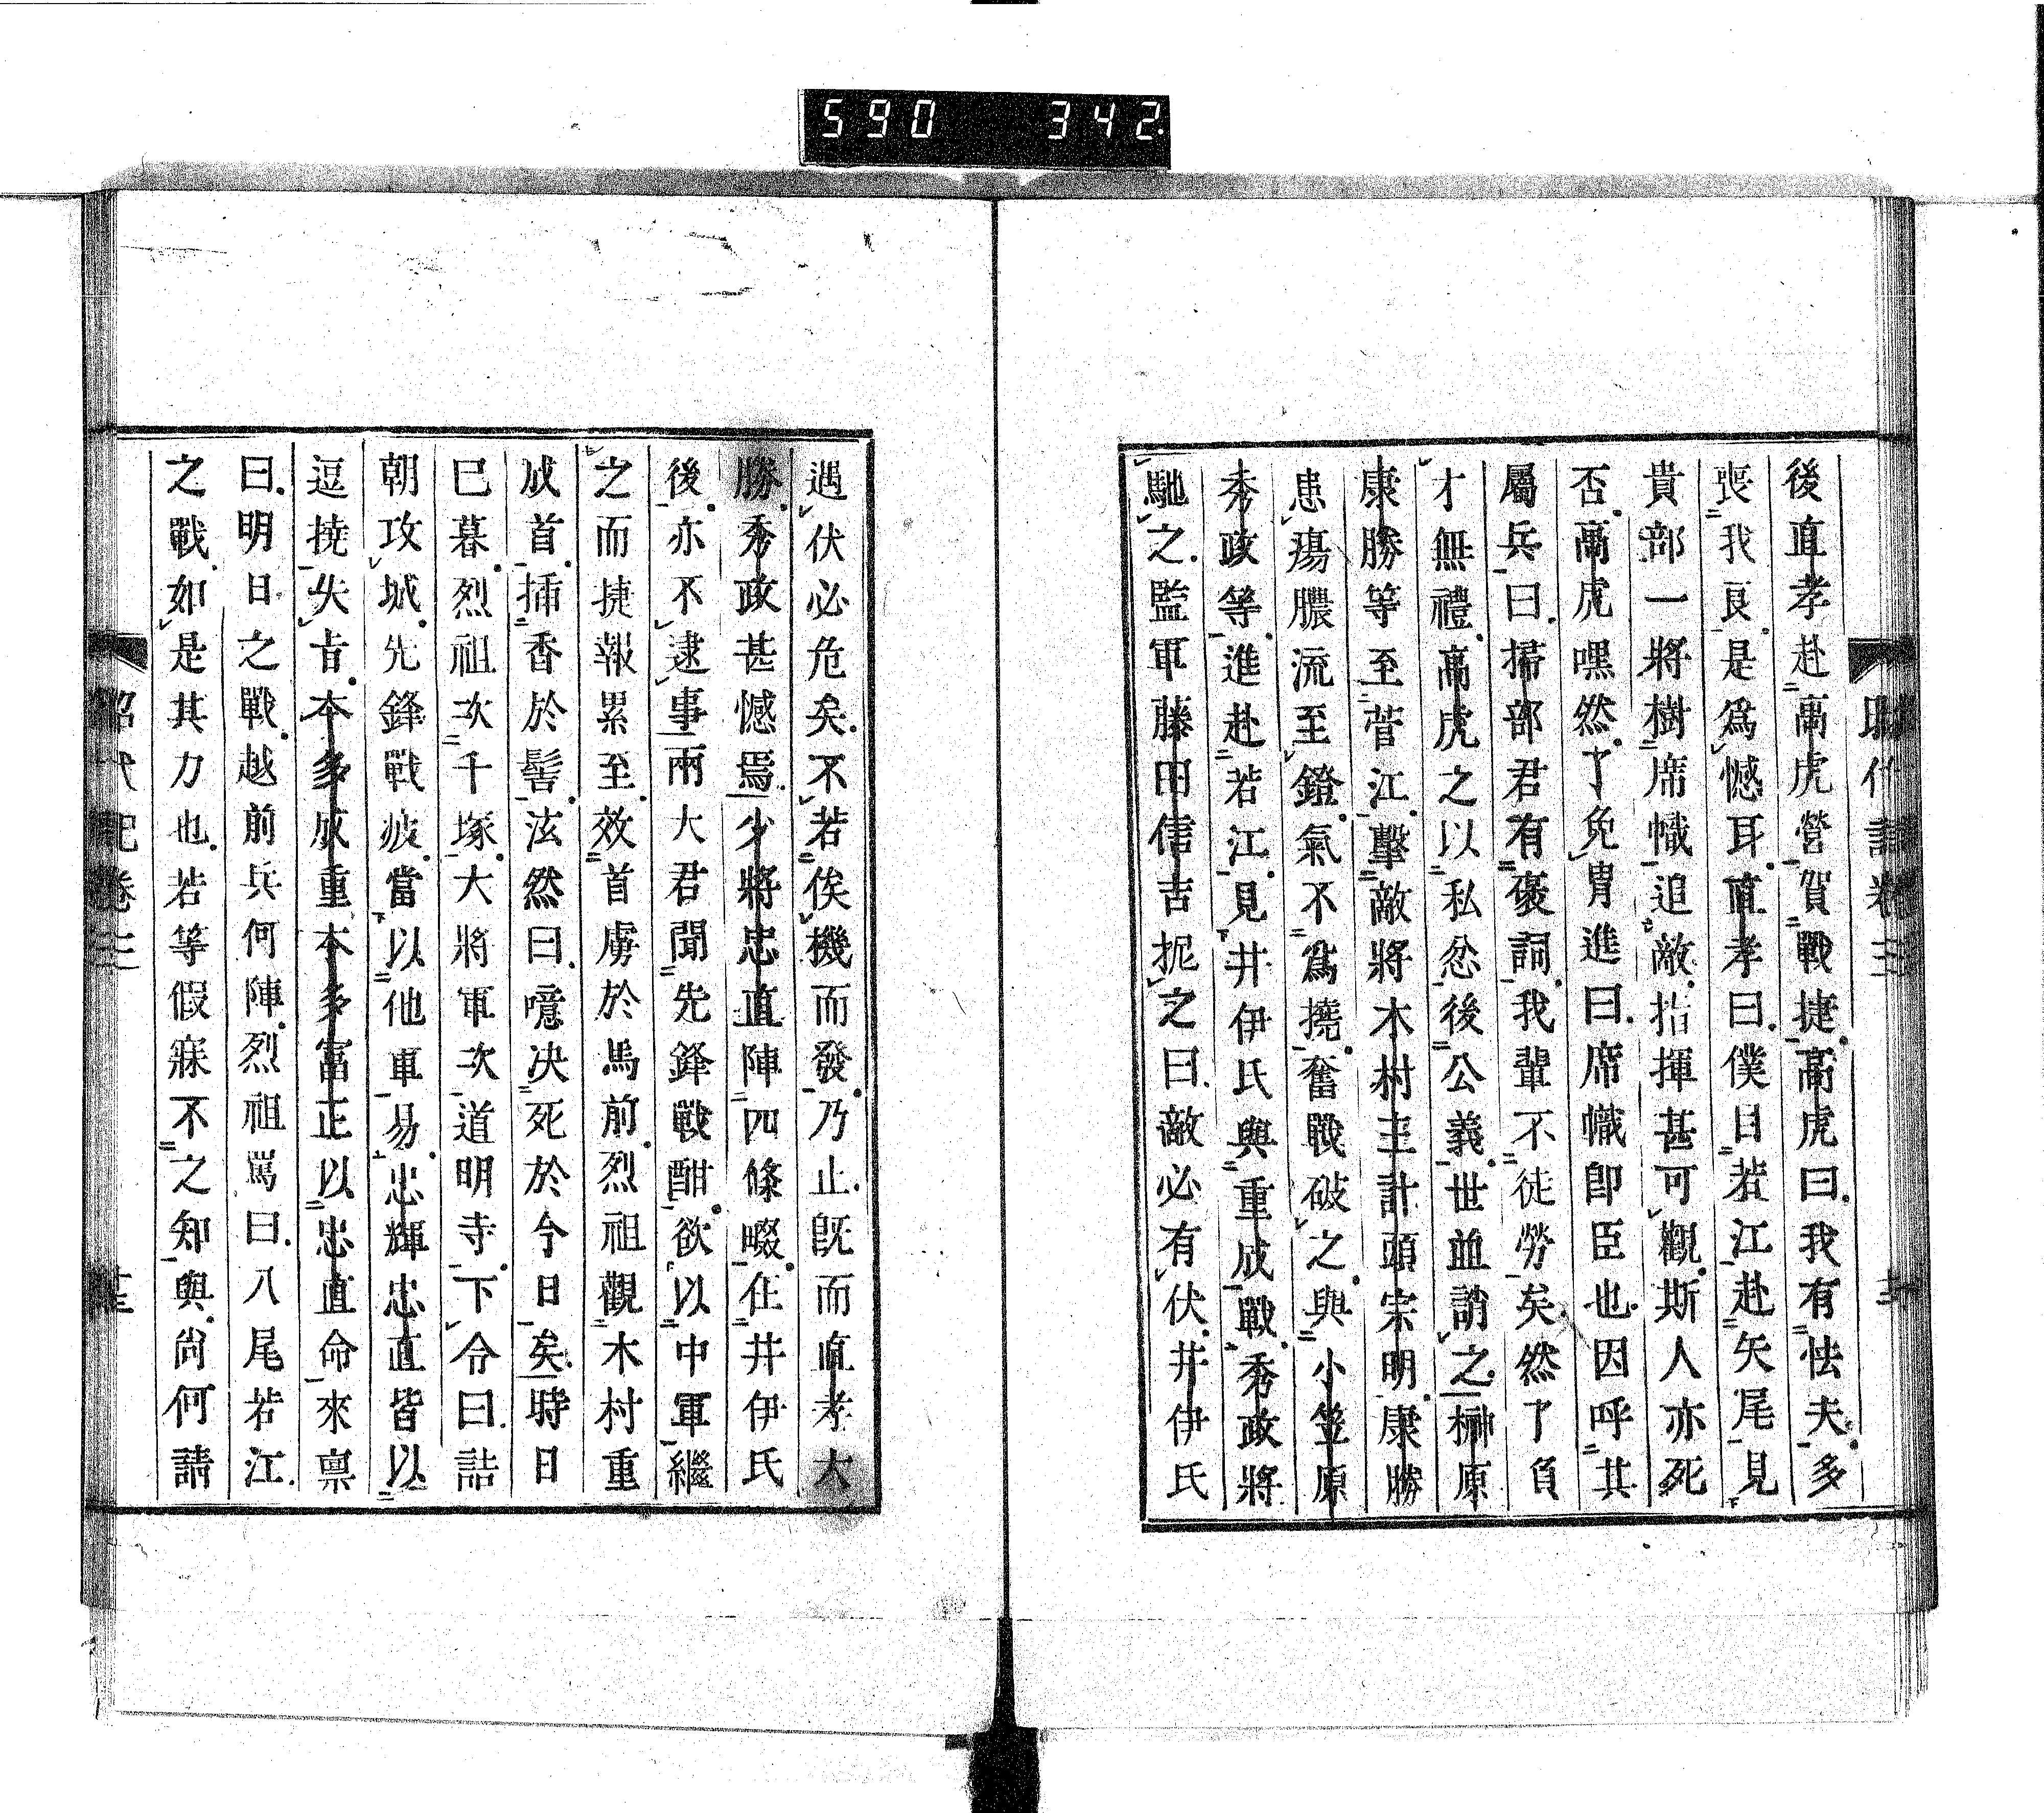 590 342
後直孝赴高虎營賀戰捷高虎曰我有怯夫多
喪我良是爲憾耳直孝曰僕日若江赴矢尾見
貴部一將樹席幟追敵指揮甚可觀斯人亦死
否高虎嘿然了免冑進曰席幟卽臣也因呼其
屬兵曰掃部君有褒詞我輩不徒勞矣然了負
才無禮高虎之以私忿後公義世並誚之榊原
康勝等至菅江擊敵將木村主計頭宗明康勝
患瘍膿流至鐙氣不爲撓奮戰破之與小笠原
秀政等進赴若江見井伊氏與重成戰秀政將
馳之監軍藤田信吉扼之曰敵必有伏井伊氏
遇伏必危矣不若俟機而發乃止旣而直孝大
勝秀政甚憾焉少將忠直陣四條畷在井伊氏
後亦不逮事兩大君聞先鋒戰酣欲以中軍繼
之而捷報累至效首虜於馬前烈祖觀木村重
成首插香於髻泫然曰噫决死於今日矣時日
巳暮烈祖次千塚大將軍次道明寺下令曰詰
朝攻城先鋒戰疲當以他軍易忠輝忠直皆以
逗撓失㫖本多成重本多富正以忠直命來稟
曰明日之戰越前兵何陣烈祖罵曰八尾若江
之戰如是其力也若等假寐不之知與尙何請
昭代記卷三